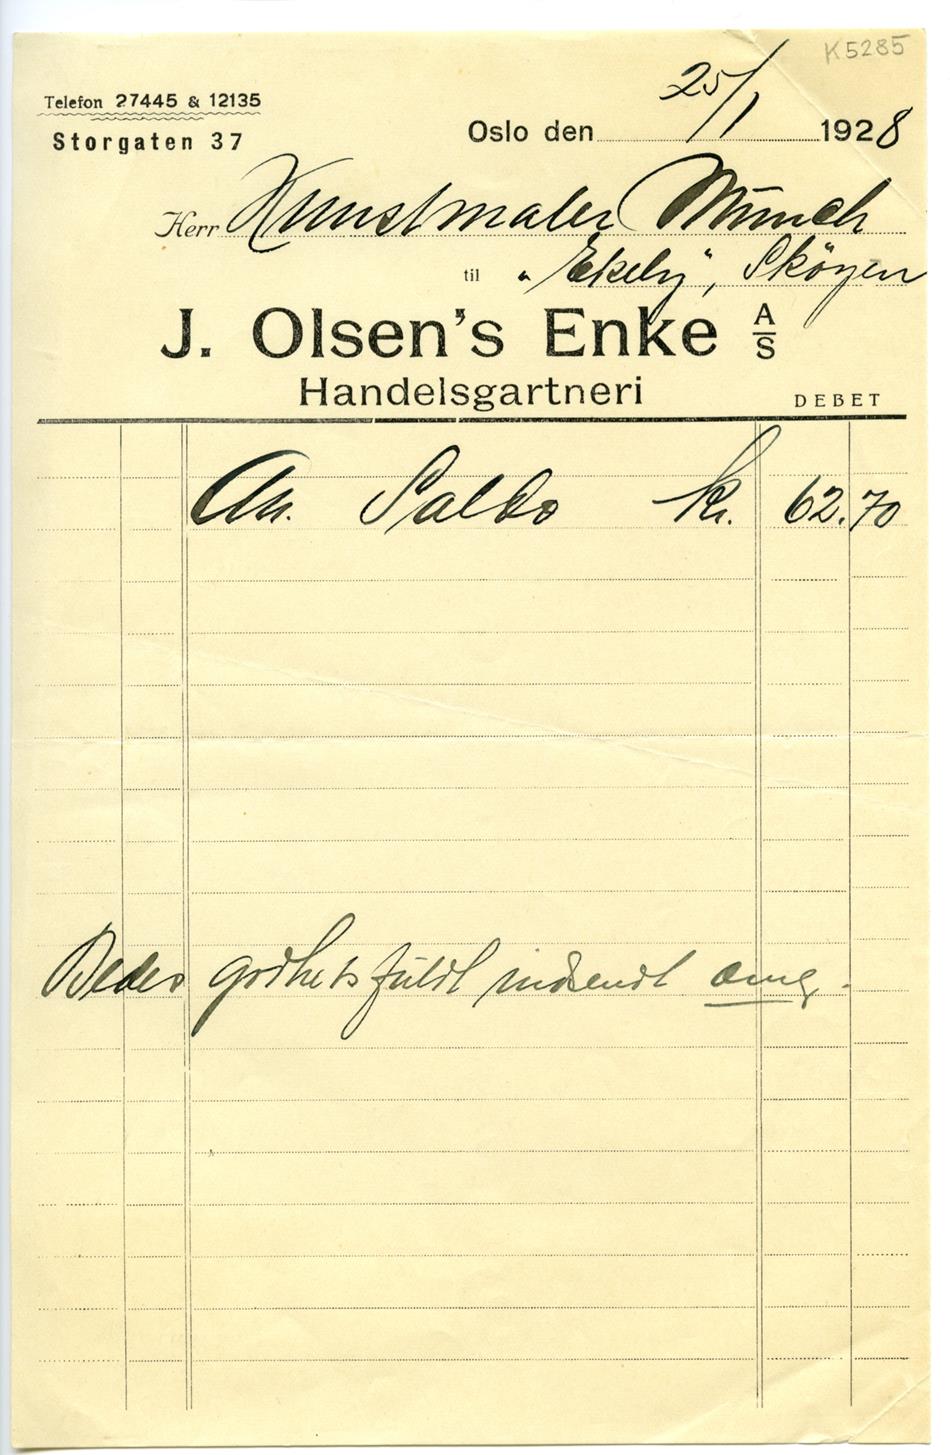 K5285
Telefon 27445 & 12135
Storgaten 37
Oslo den 25/1 1928
Herr Kunstmaler Munch
til "Ekely", Sköyen
J. Olsen's Enke A/S
Handelsgartneri
DEBET
An. Saldo kr. 62.70
Bedes godhetsfuldt indsendt omg.